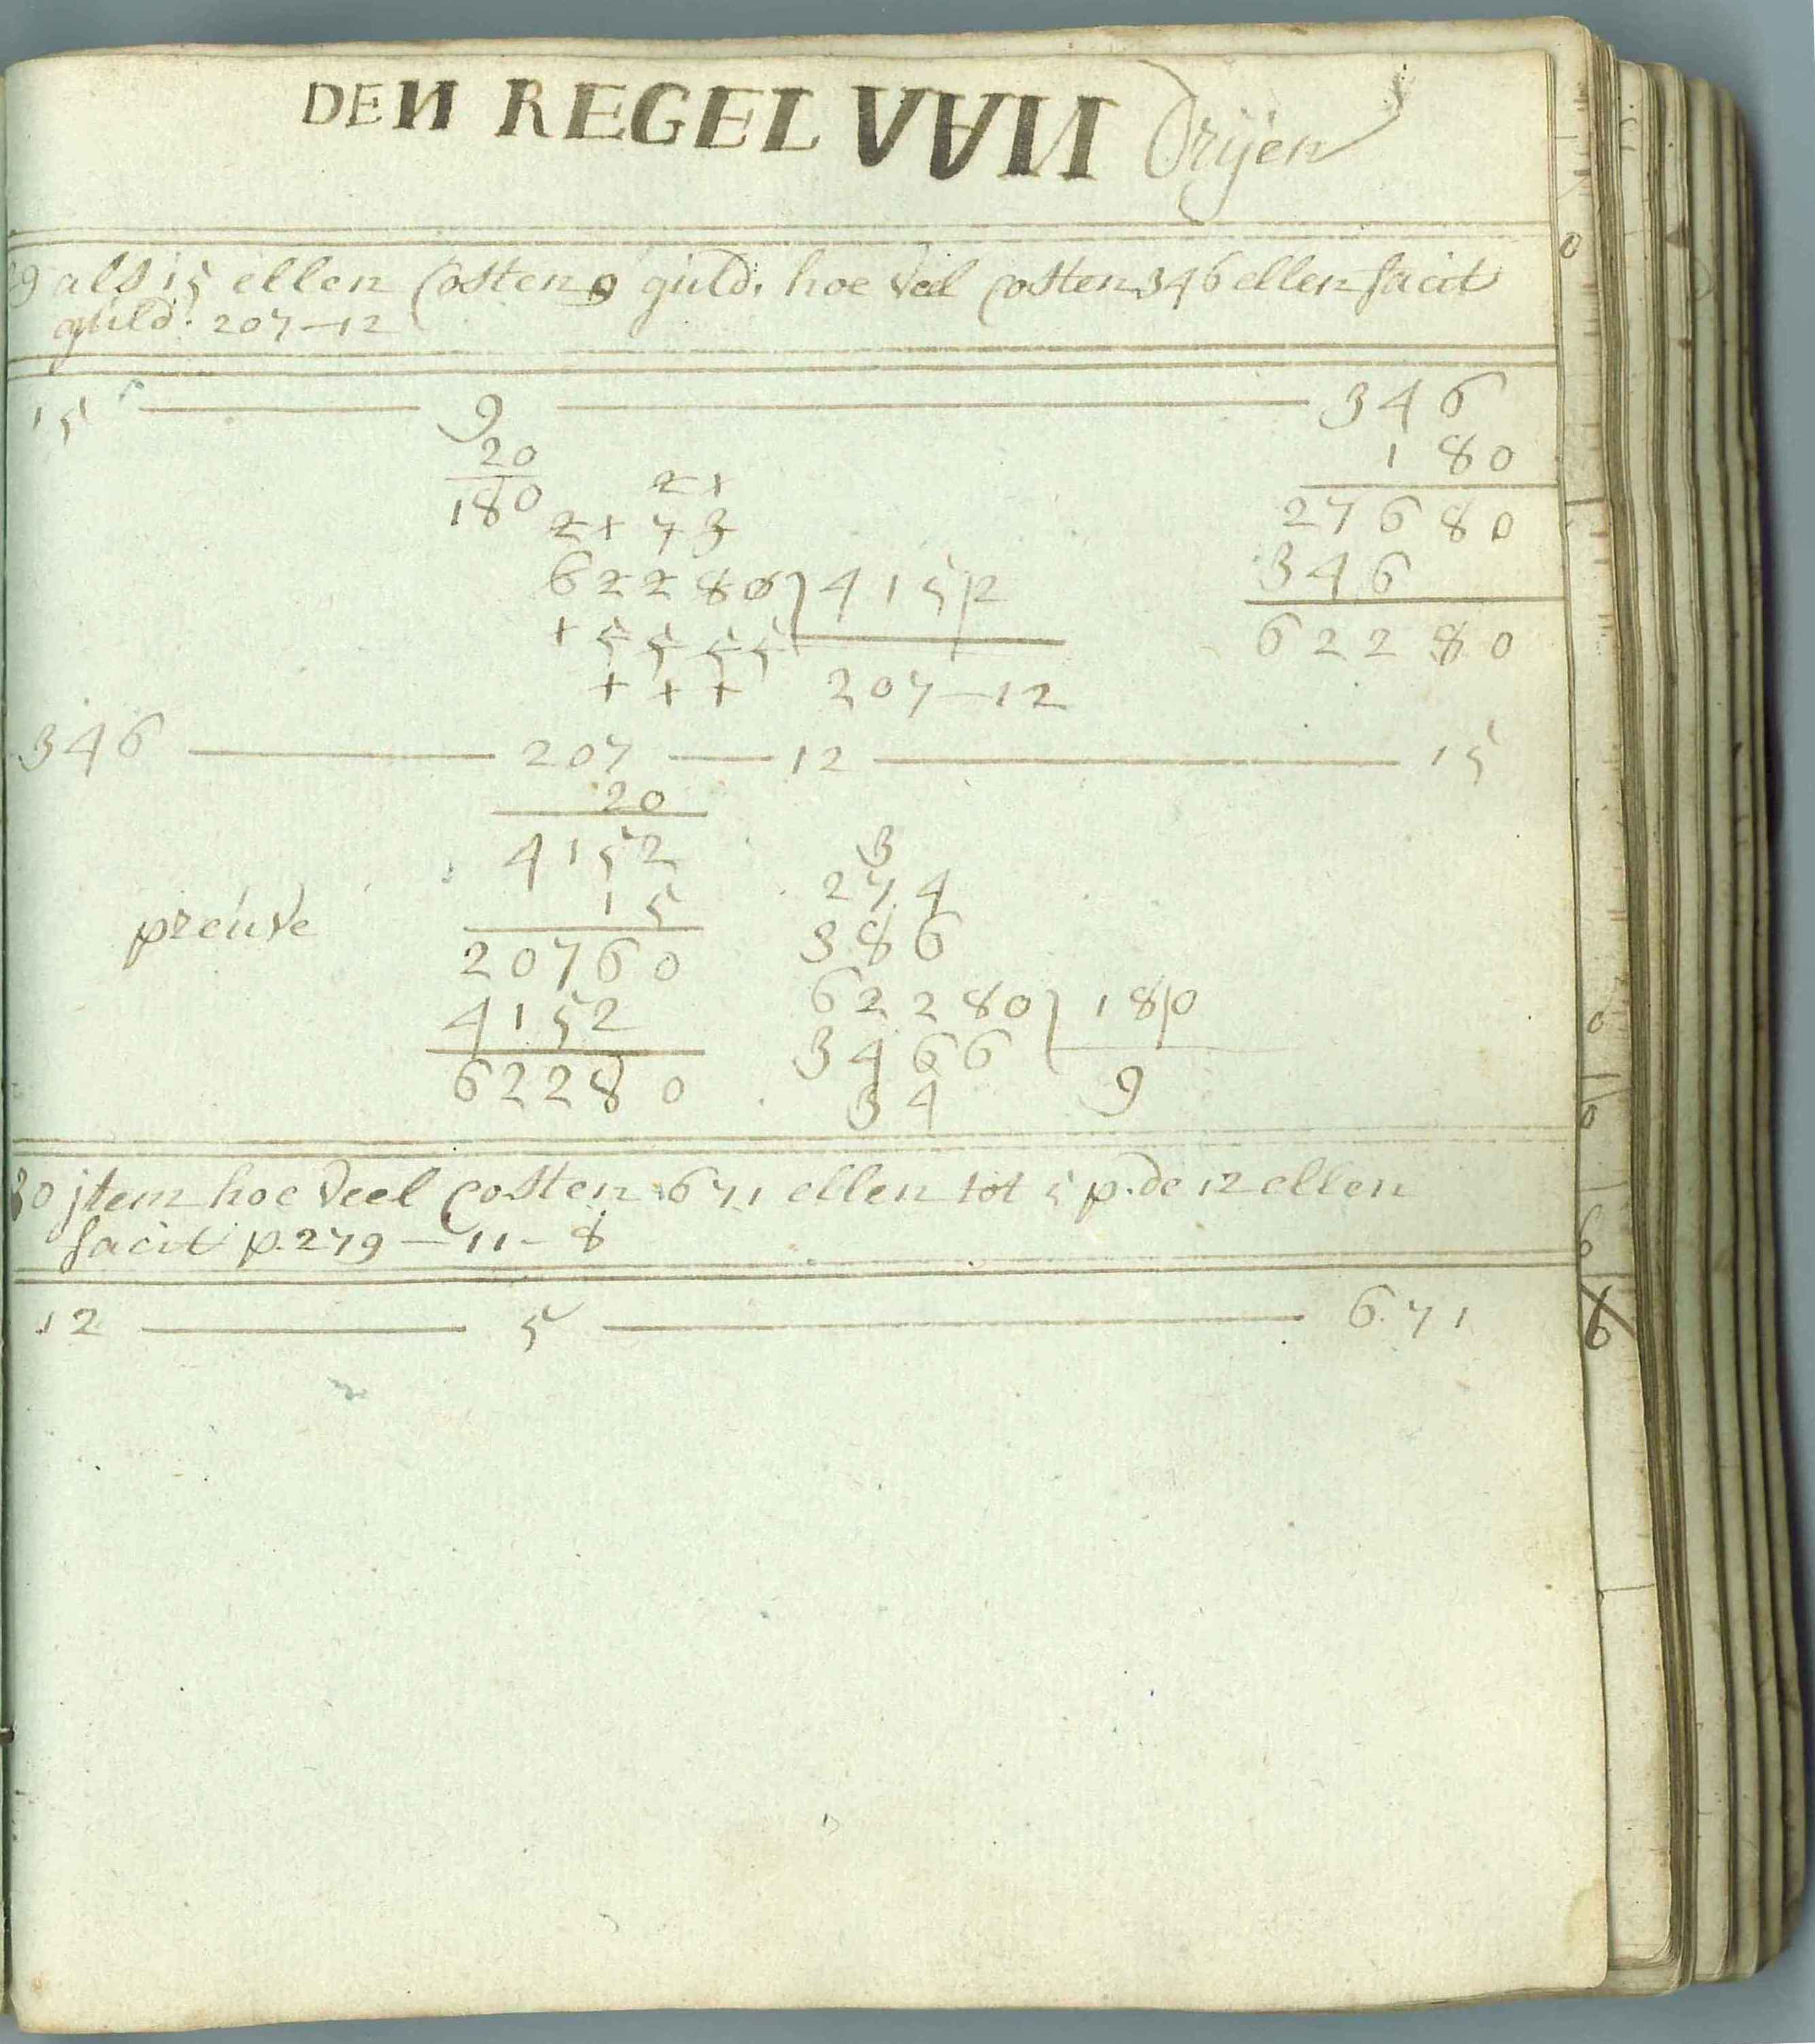 DEN REGEL VAN Drijen
29 als 15 ellen Costen 9 guld. hoe veel Costen 346 ellen facit
guld. 207—12
15 — 9 — 346
20 180
180 27680
346
62280
21
21 73
62280) 415|2
15555
111 207—12
346 — 207 — 12 — 15
20
4152
15
preuve
20760
4152
62280
3
274
386
62280) 18|0
3466 9
34
30 jtem hoe veel Costen 671 ellen tot 5 p. de 12 ellen
facit p. 279—11-8
12 — 5 — 671